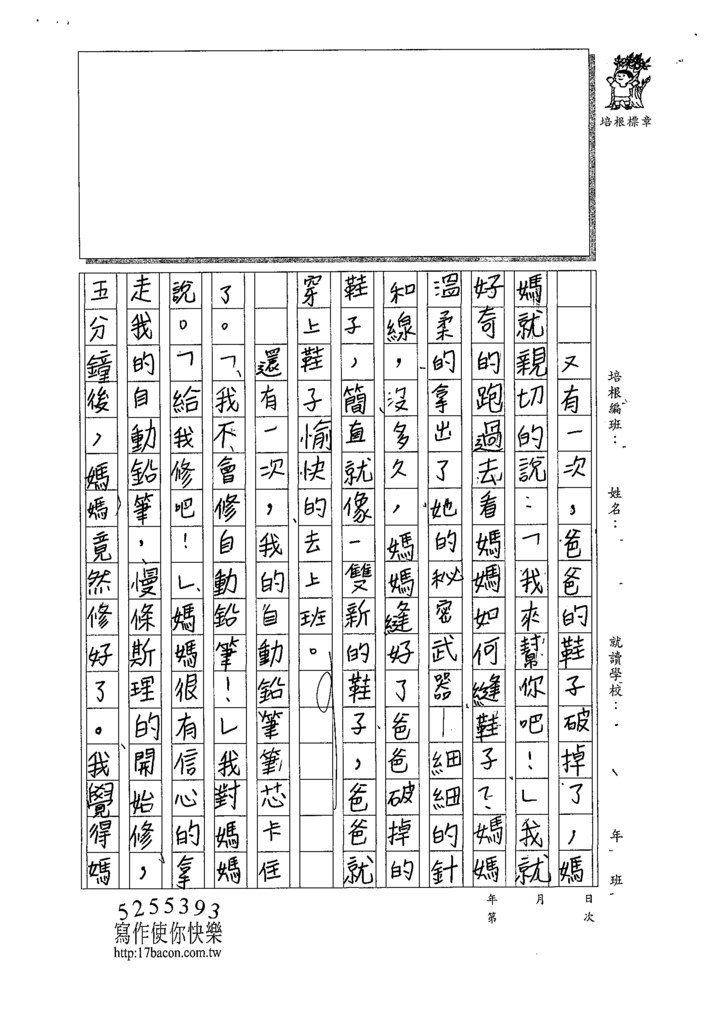 培根標章
培根編班：
姓名：
就讀學校：
年 班
年 月 日
第 次
又有一次，爸爸的鞋子破掉了，媽
媽就親切的說：「我來幫你吧！」我就
好奇的跑過去看媽媽如何縫鞋子？媽媽
溫柔的拿出了她的秘密武器—細細的針
和線，沒多久，媽媽縫好了爸爸破掉的
鞋子，簡直就像一雙新的鞋子，爸爸就
穿上鞋子愉快的去上班。
還有一次，我的自動鉛筆筆芯卡住
了。「我不會修自動鉛筆！」我對媽媽
說。「給我修吧！」媽媽很有信心的拿
走我的自動鉛筆，慢條斯理的開始修，
五分鐘後，媽媽竟然修好了。我覺得媽
5255393
寫作使你快樂
http:17bacon.com.tw